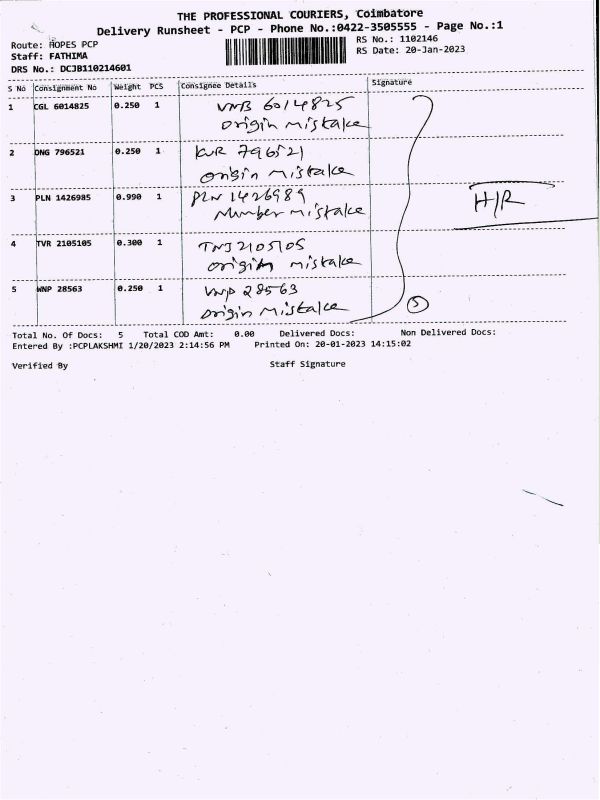 THE PROFESSIONAL COURIERS, Coimbatore
Delivery Runsheet - PCP - Phone No.:0422-3505555 - Page No.:1
Route: HOPES PCP
RS No.: 1102146
Staff: FATHIMA
RS Date: 20-Jan-2023
DRS No.: DCJB110214601
S No Consignment No Weight PCS Consignee Details Signature
1 CGL 6014825 0.250 1 VNB 6014825
origin mistake
2 DNG 796521 0.250 1 KVR 796521
origin mistake
3 PLN 1426985 0.990 1 PLN 1426989
Number mistake
H/R
4 TVR 2105105 0.300 1 TNJ 2105105
origin mistake
5 WNP 28563 0.250 1 VNP 28563
origin mistake
5
Total No. Of Docs: 5 Total COD Amt: 0.00 Delivered Docs: Non Delivered Docs:
Entered By :PCPLAKSHMI 1/20/2023 2:14:56 PM Printed On: 20-01-2023 14:15:02
Verified By Staff Signature